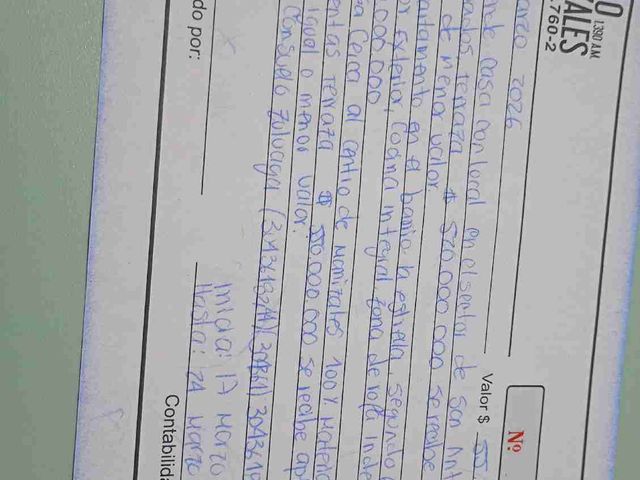 O 1.390 A.M.
ALES
.760-2
Nº
arzo 2026
Valor $
nde casa con local en el sector de San Ant
ados, terraza $ 520.000.000 se recibe
de menor valor
artamento en el barrio la estrella, segundo
or exterior, cocina integral zona de ropa inde
.000.000
a cerca al centro de manizales 100%
entas terraza $ 550.000.000 se recibe
igual o menor valor.
Consuelo Zuluaga
Inicia: 17 Marzo
Hasta: 24 Marzo
do por:
Contabilida